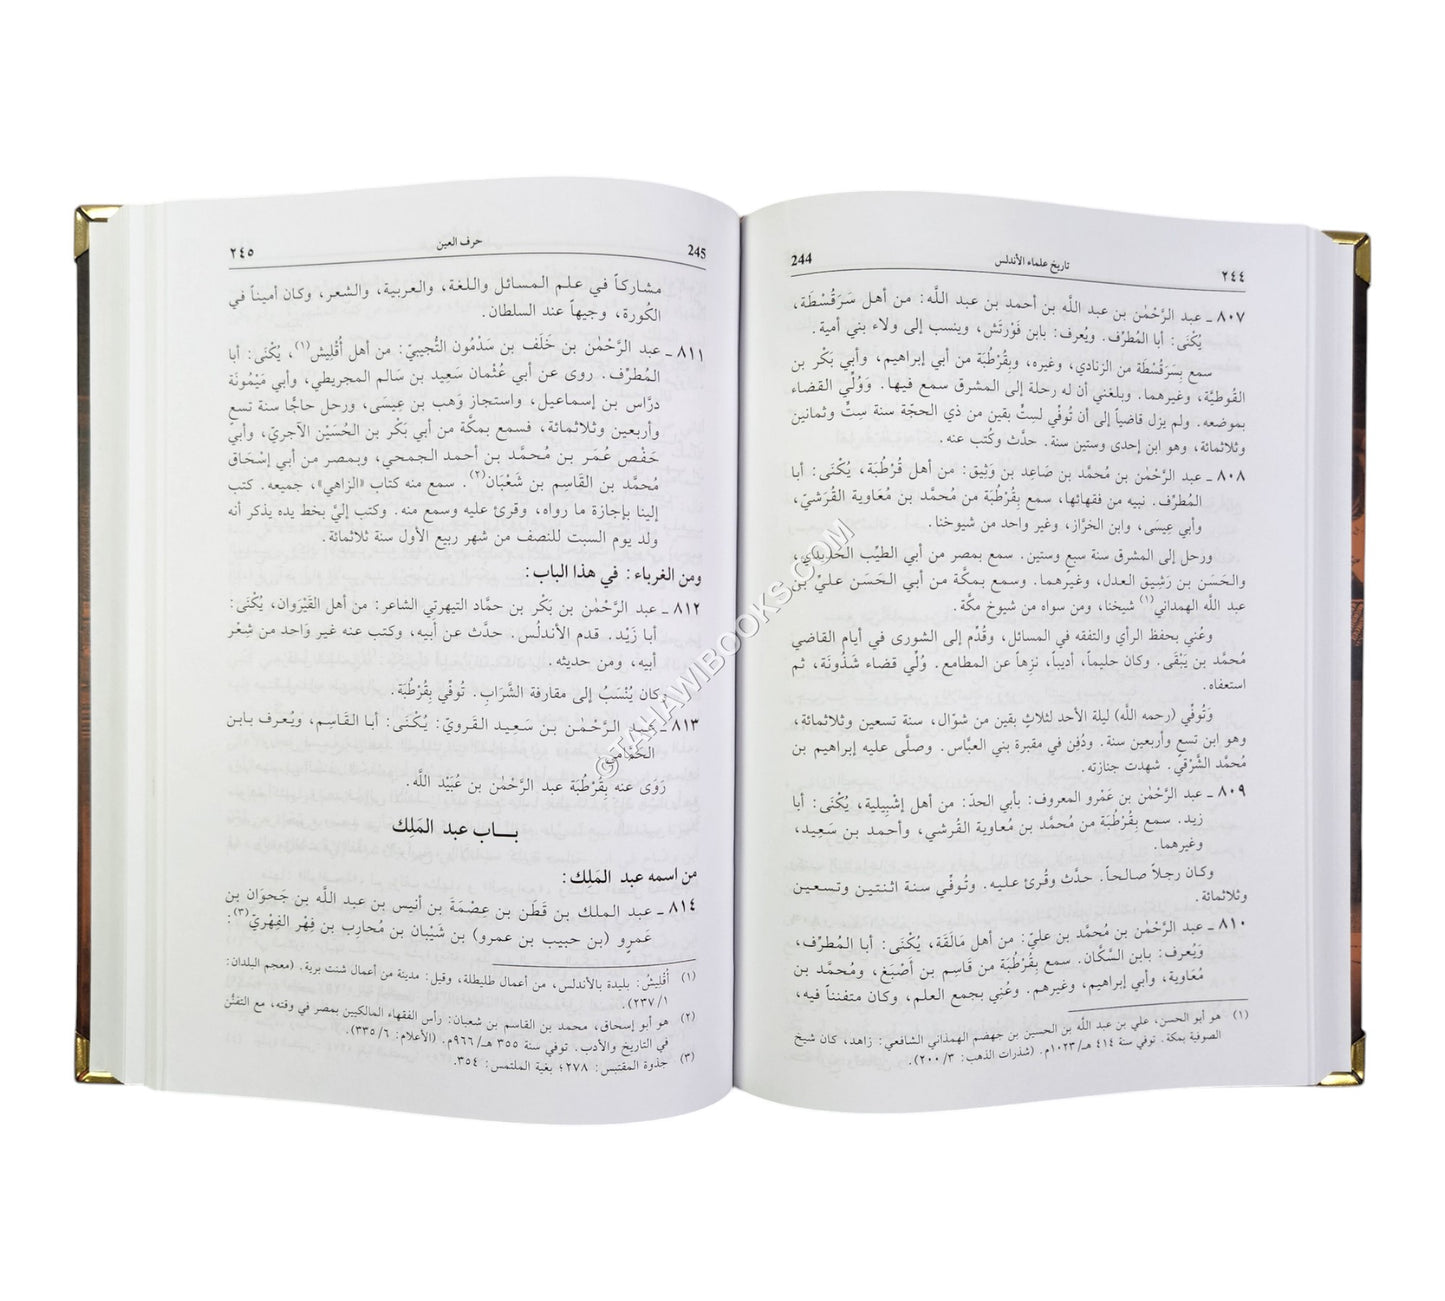 ٢٤٤ تاريخ علماء الأندلس 244
٨٠٧ ـ عبد الرَّحْمٰن بن عبد اللَّه بن أحمد بن عبد اللَّه: من أهل سَرَقُسْطَة،
يُكْنَى: أبا المُطرِّف. ويُعرف: بابن فَوْرتَش، وينسب إلى ولاء بني أمية.
سمع بِسَرَقُسْطَة من الزنادي، وغيره، وبِقُرْطُبَة من أبي إبراهيم، وأبي بَكْر بن
القُوطِيَّة، وغيرهما. وبلغني أن له رحلة إلى المشرق سمع فيها. وَوُلِّي القضاء
بموضعه. ولم يزل قاضياً إلى أن تُوفّي لستٍّ بقين من ذي الحجّة سنة سِتٍّ وثمانين
وثلاثمائة، وهو ابن إحدى وستين سنة. حدَّث وكُتب عنه.
٨٠٨ ـ عبد الرَّحْمٰن بن مُحمَّد بن صَاعِد بن وَثِيق: من أهل قُرْطُبَة، يُكْنَى: أبا
المُطرِّف. نبيه من فقهائها، سمع بِقُرْطُبَة من مُحمَّد بن مُعَاوية القُرَشيّ،
وأبي عِيسَى، وابن الخرَّاز، وغير واحد من شيوخنا.
ورحل إلى المشرق سنة سبعٍ وستين. سمع بمصر من أبي الطيِّب الحَديدي،
والحَسَن بن رَشِيق العدل، وغيرهما. وسمع بمكَّة من أبي الحَسَن عليّ بن
عبد اللَّه الهمداني(١) شيخنا، ومن سواه من شيوخ مكَّة.
وعُني بحفظ الرأي والتفقه في المسائل، وقُدِّم إلى الشورى في أيام القاضي
مُحمَّد بن يَبْقَى. وكان حليماً، أديباً، نزِهاً عن المطامع. وُلِّي قضاء شَذُونَة، ثم
استعفاه.
وَتُوفّي (رحمه اللَّه) ليلة الأحد لثلاثٍ بقين من شوّال، سنة تسعين وثلاثمائة،
وهو ابن تسعٍ وأربعين سنة. ودُفِن في مقبرة بني العبَّاس. وصلَّى عليه إبراهيم بن
مُحمَّد الشَّرَفيّ. شهدت جنازته.
٨٠٩ ـ عبد الرَّحْمٰن بن عَمْرو المعروف: بأبي الحدّ: من أهل إشْبِيلية، يُكْنَى: أبا
زيد. سمع بِقُرْطُبَة من مُحمَّد بن مُعاوية القُرشي، وأحمد بن سَعِيد،
وغيرهما.
وكان رجلاً صالحاً. حدَّث وقُرئ عليه. وتُوفّي سنة اثنتين وتسعين
وثلاثمائة.
٨١٠ ـ عبد الرَّحْمٰن بن مُحمَّد بن عليّ: من أهل مَالَقَة، يُكْنَى: أبا المُطرِّف،
وَيُعرف: بابن السكَّان. سمع بِقُرْطُبَة من قَاسِم بن أَصْبَغ، ومُحمَّد بن
مُعَاوية، وأبي إبراهيم، وغيرهم. وعُني بجمع العلم، وكان متفنناً فيه،
(١) هو أبو الحسن، علي بن عبد اللَّه بن الحسين بن جهضم الهمذاني الشافعي: زاهد، كان شيخ
الصوفية بمكة. توفي سنة ٤١٤ هـ/١٠٢٣م. (شذرات الذهب: ٣/ ٢٠٠).
245 حرف العين ٢٤٥
مشاركاً في علم المسائل واللغة، والعربية، والشعر، وكان أميناً في
الكُورة، وجيهاً عند السلطان.
٨١١ ـ عبد الرَّحْمٰن بن خَلَف بن سَدْمُون التُّجيبيّ: من أهل أُقْلِيش(١)، يُكْنَى: أبا
المُطرِّف. روى عن أبي عُثْمان سَعِيد بن سَالم المجريطي، وأبي مَيْمُونَة
درَّاس بن إسماعيل، واستجاز وَهب بن عِيسَى، ورحل حاجًّا سنة تسع
وأربعين وثلاثمائة، فسمع بمكّة من أبي بَكْر بن الحُسَيْن الآجري، وأبي
حَفْص عُمَر بن مُحمَّد بن أحمد الجمحي، وبمصر من أبي إسْحَاق
مُحمَّد بن القَاسِم بن شَعْبَان(٢). سمع منه كتاب «الزاهي»، جميعه. كتب
إلينا بإجازة ما رواه، وقرئ عليه وسمع منه. وكتب إليَّ بخط يده يذكر أنه
ولد يوم السبت للنصف من شهر ربيع الأول سنة ثلاثمائة.
ومن الغرباء: في هذا الباب:
٨١٢ ـ عبد الرَّحْمٰن بن بَكْر بن حمَّاد التيهرتي الشاعر: من أهل القَيْرَوان، يُكْنَى:
أبا زَيْد. قدم الأندلُس. حدَّث عن أبيه، وكتب عنه غير وَاحد من شِعْر
أبيه، ومن حديثه.
كان يُنْسَبُ إلى مقارفة الشَّرَاب. تُوفّي بِقُرْطُبَة.
٨١٣ ـ عبد الرَّحْمٰن بن سَعِيد القَرويّ: يُكْنَى: أبا القَاسم، ويُعرف بابن
رَوَى عنه بِقُرْطُبَة عبد الرَّحْمٰن بن عُبَيْد اللَّه.
بـــاب عبد المَلِك
من اسمه عبد المَلِك:
٨١٤ ـ عبد الملك بن قَطَن بن عِصْمَةَ بن أنيس بن عبد اللَّه بن جَحوَان بن
عَمرٍو (بن حبيب بن عمرو) بن شَيْبان بن مُحارب بن فِهْر الفِهْريّ(٣):
(١) أُقْليشُ: بليدة بالأندلس، من أعمال طليطلة، وقيل: مدينة من أعمال شنت برية. (معجم البلدان:
١/ ٢٣٧).
(٢) هو أبو إسحاق، محمد بن القاسم بن شعبان: رأس الفقهاء المالكيين بمصر في وقته، مع التفنُّن
في التاريخ والأدب. توفي سنة ٣٥٥ هـ/٩٦٦م. (الأعلام: ٦/ ٣٣٥).
(٣) جذوة المقتبس: ٢٧٨؛ بغية الملتمس: ٣٥٤.
© TAHAWIBOOKS.COM